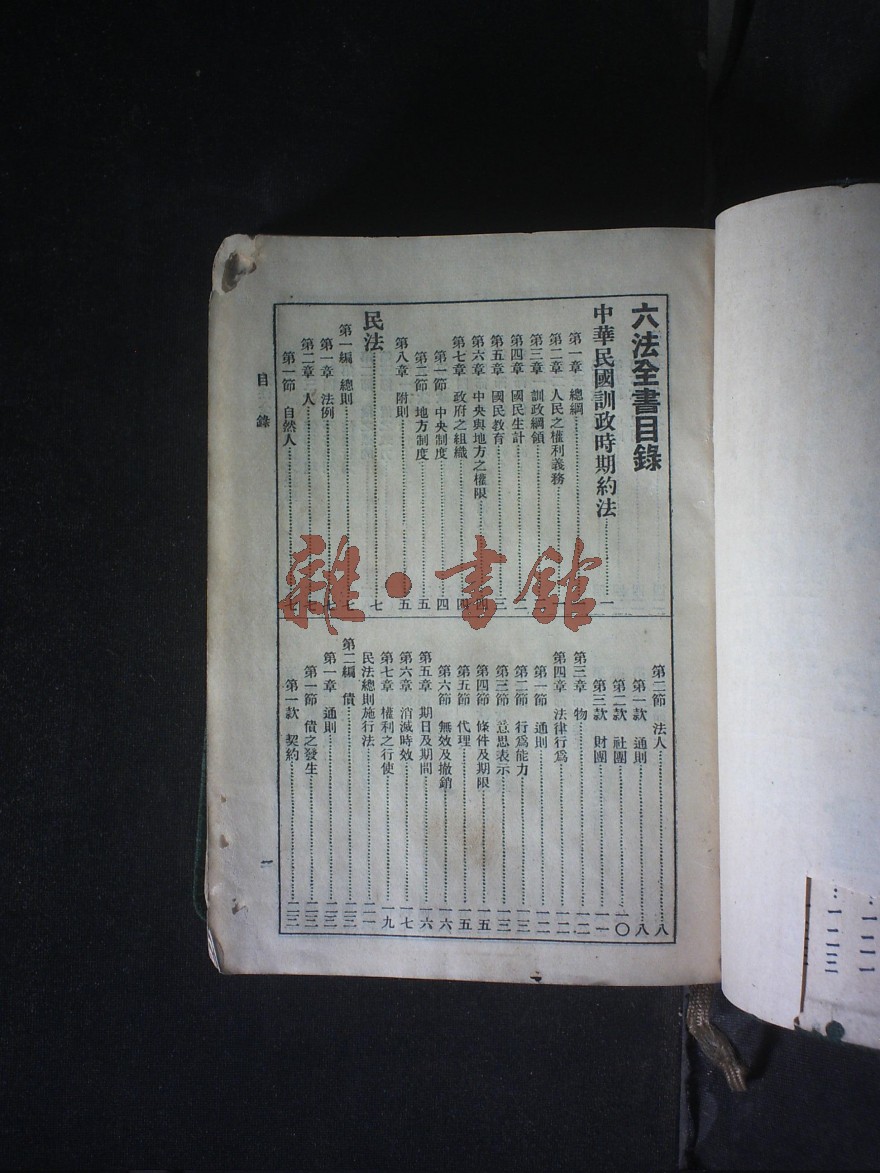 六法全書目錄
中華民國訓政時期約法 一
第一章 總綱
第二章 人民之權利義務
第三章 訓政綱領
第四章 國民生計 二
第五章 國民教育 三
第六章 中央與地方之權限 四
第七章 政府之組織 四
第一節 中央制度 四
第二節 地方制度 五
第八章 附則 五
民法 七
第一編 總則 七
第一章 法例 七
第二章 人 七
第一節 自然人 七
第二節 法人 八
第一款 通則 八
第二款 社團 一〇
第三款 財團 一一
第三章 物 一二
第四章 法律行為 一二
第一節 通則 一二
第二節 行為能力 一三
第三節 意思表示 一三
第四節 條件及期限 一五
第五節 代理 一五
第六節 無效及撤銷 一六
第五章 期日及期間 一六
第六章 消滅時效 一七
第七章 權利之行使 一九
民法總則施行法 二一
第二編 債 二三
第一章 通則 二三
第一節 債之發生 二三
第一款 契約 二三
目錄
一
雜·書館